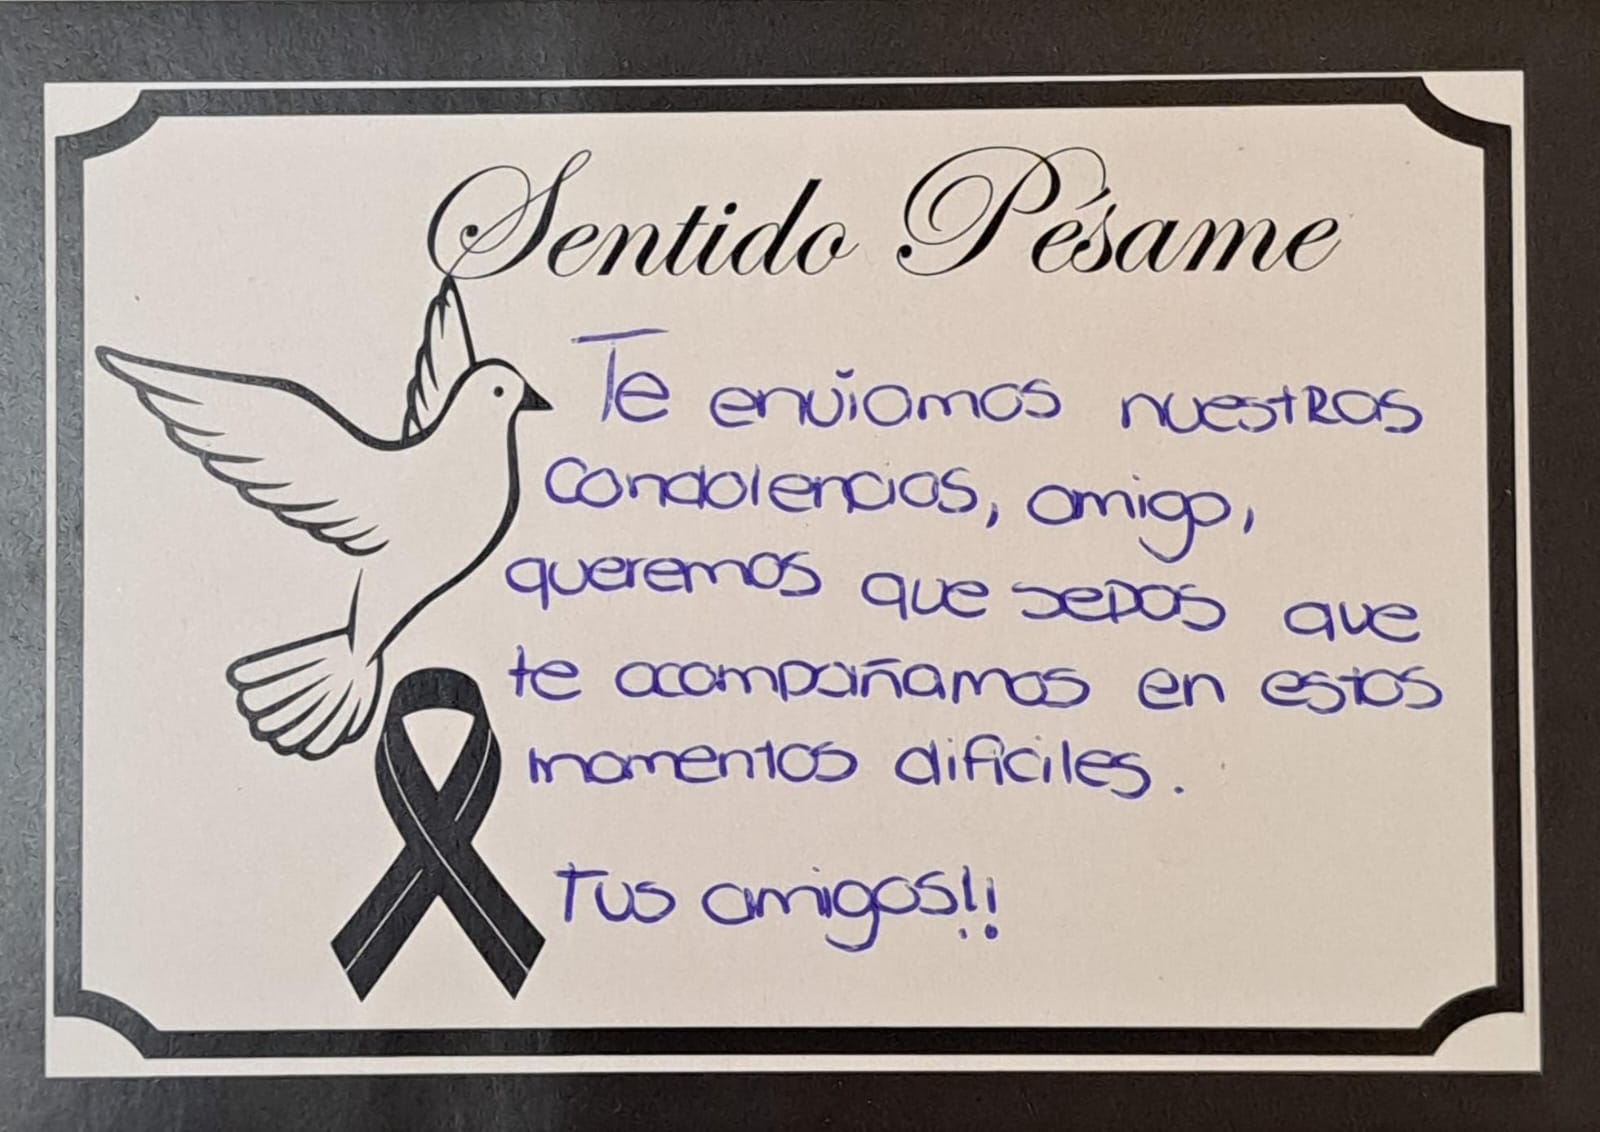 Sentido Pésame
Te enviamos nuestras
condolencias, amigo,
queremos que sepas que
te acompañamos en estos
momentos dificiles.
Tus amigos!!